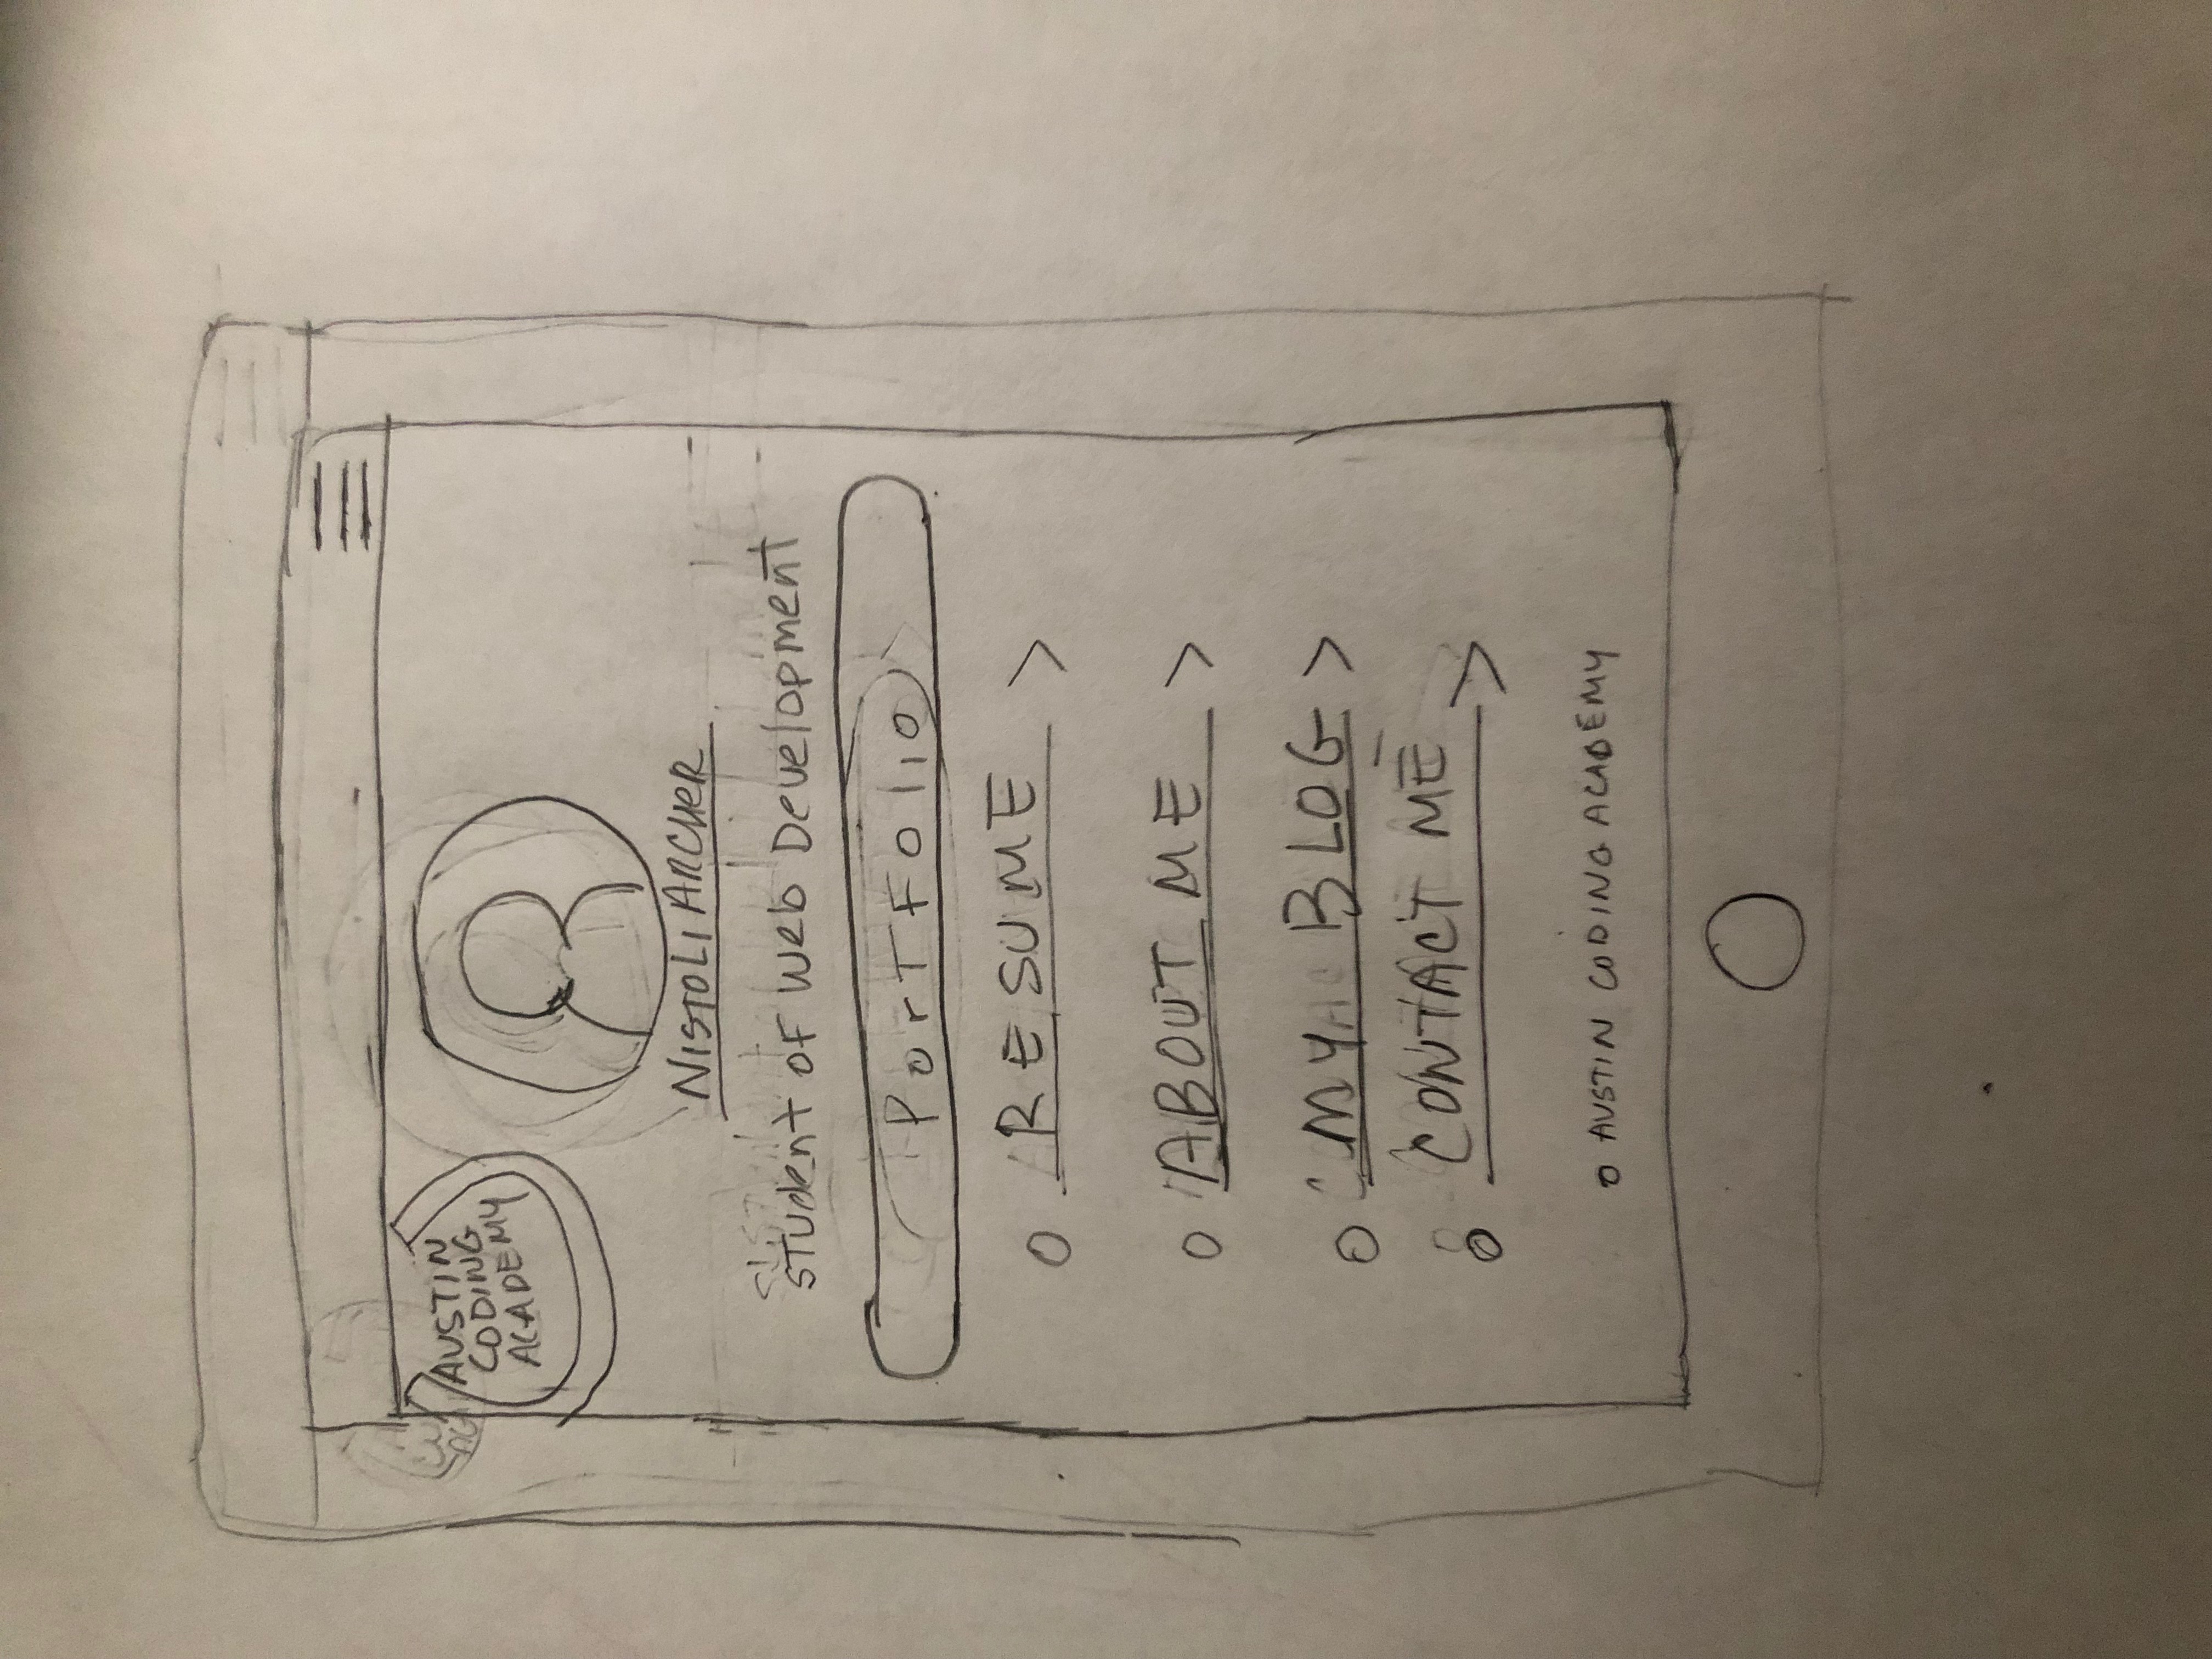 AUSTIN
CODING
ACADEMY
NISTOLI ARCHER
Student of Web Development
PORTFOLIO
RESUME >
ABOUT ME >
MY BLOG >
CONTACT ME >
AUSTIN CODING ACADEMY